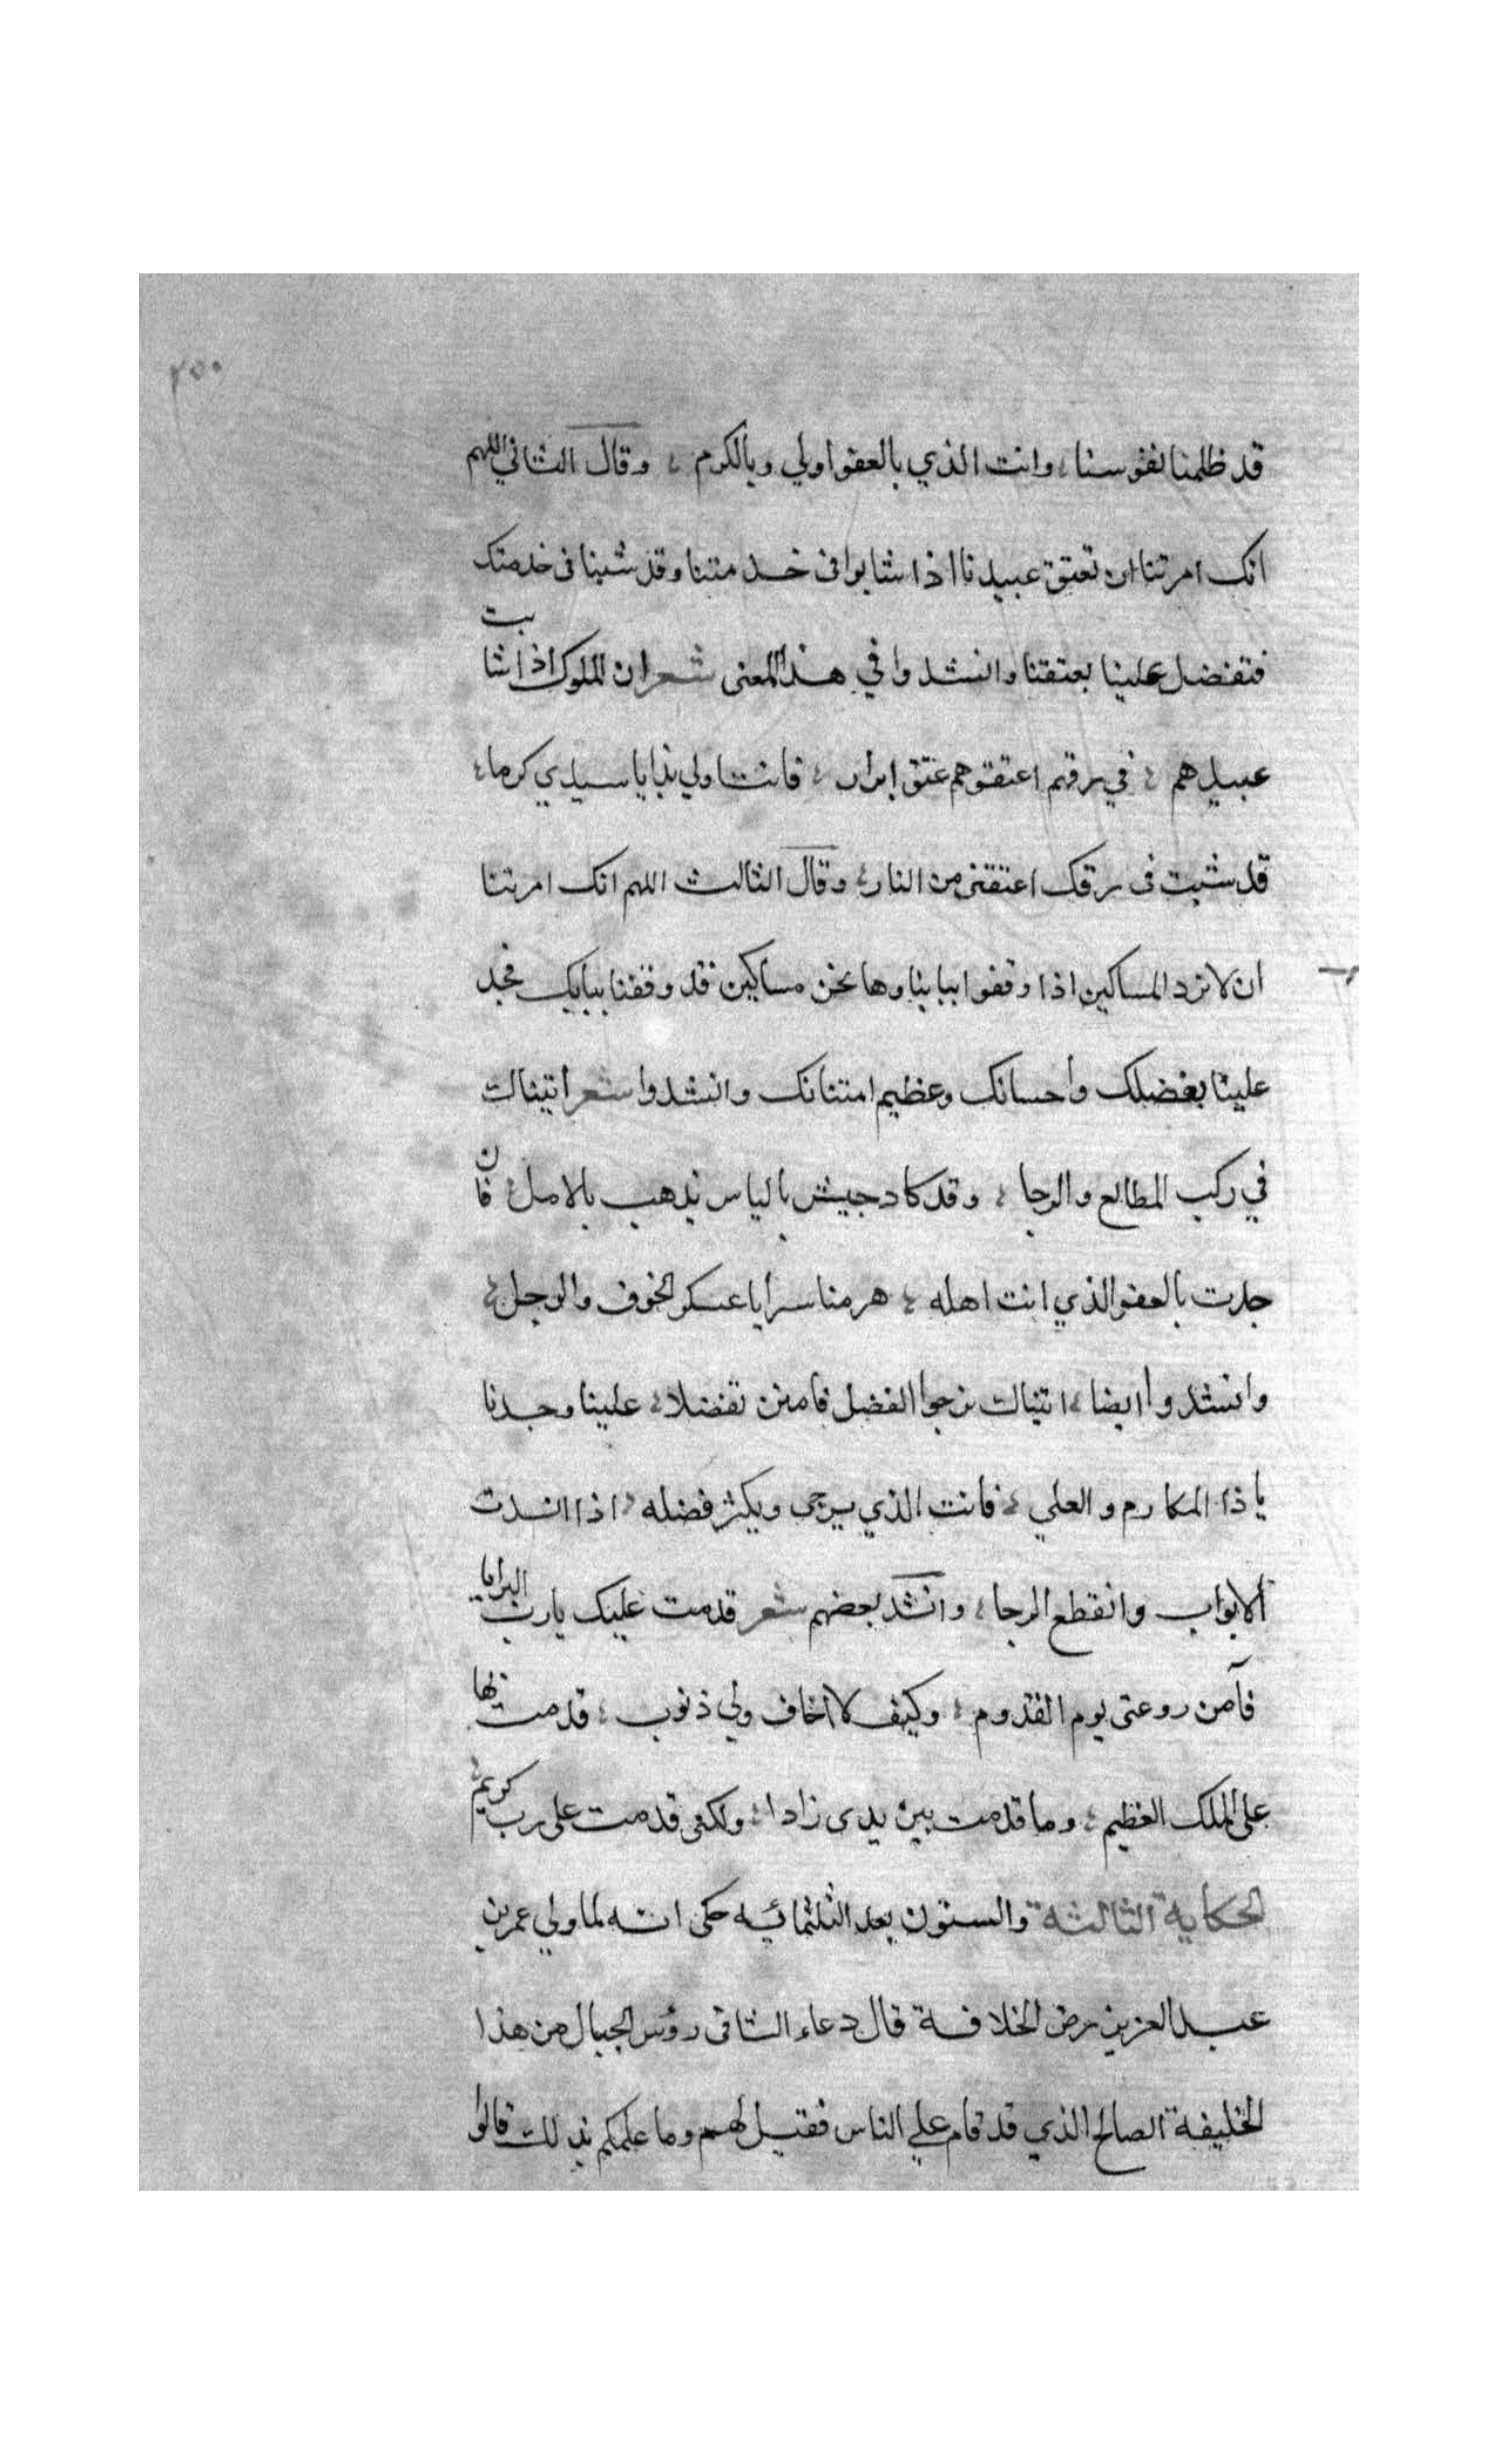 ٢٥٠
قد ظلمنا نفوسنا، وانت الذي بالعفو اولي وبالكرم ، وقال الثاني اللهم
انك امرتنا ان نعتق عبيدنا اذا شابوا في خدمتنا وقد شبنا في خدمتك
فتفضل علينا بعتقنا وانشدوا في هذا المعنى شعر ان الملوك اذا شابت
عبيدهم ، في رقهم اعتقوهم عتق ابرار ، فانت اولي بذا يا سيدي كرما ،
قد شبت في رقك اعتقني من النار ، وقال الثالث اللهم انك امرتنا
ان لا نرد المساكين اذا وقفوا ببابنا وها نحن مساكين قد وقفنا ببابك فجد
علينا بفضلك وأحسانك وعظيم امتنانك وانشدوا شعر اتيناك
في ركب المطالع والرجا ، وقد كاد جيش بالياس يذهب بالامل ، فان
جدت بالعفو الذي انت اهله ، هزمنا سرايا عسكر الخوف والوجل ،
وانشدوا ايضا ، اتيناك نرجوا الفضل فامنن تفضلا ، علينا وجدنا
يا ذا المكارم والعلي ، فانت الذي يرجى ويكثر فضله ، اذا انسدت
الابواب وانقطع الرجا ، وانشد بعضهم شعر قدمت عليك يا رب البرايا
فآمن روعتي يوم القدوم ، وكيف لا اخاف ولي ذنوب ، قدمت بها
على الملك العظيم ، وما قدمت بين يدى زادا ، ولكني قدمت على رب كريم ،
الحكاية الثالثة والستون بعد الثلثمائيه حكى انه لما ولي عمر بن
عبد العزيز رض الخلافة قال دعاء الشا في رؤس الجبال من هذا
الخليفة الصالح الذي قد قام علي الناس فقيل لهم وما علمكم بذلك قالوا